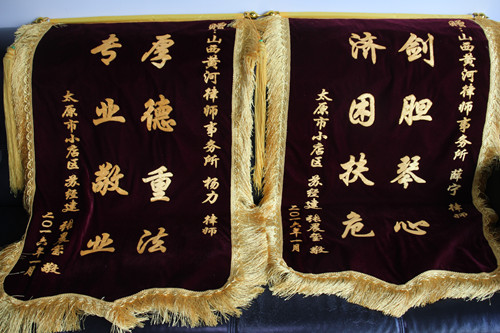 赠:山西黄河律师事务所 薛宁 律师
剑胆琴心
济困扶危
太原市小店区 苏经建 敬
二〇一六年一月
赠:山西黄河律师事务所 杨力 律师
厚德重法
专业敬业
太原市小店区 苏经建 敬
二〇一六年一月